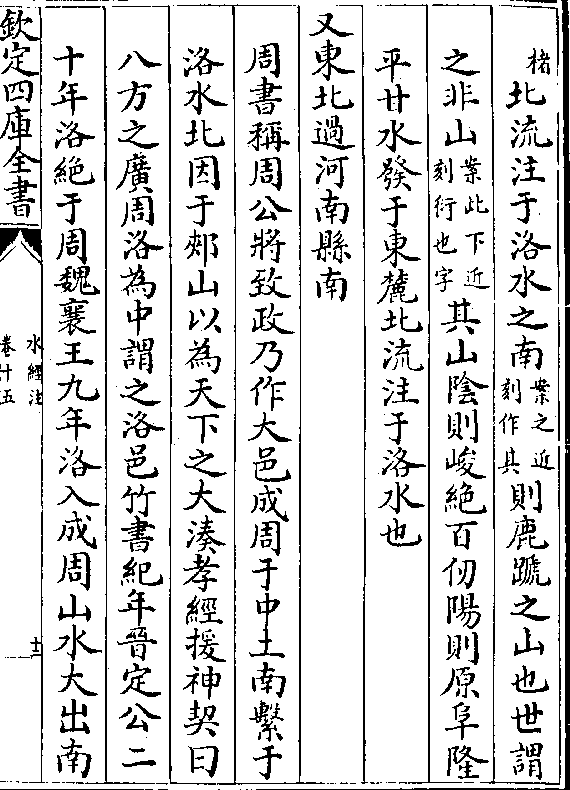 楮北流注于洛水之南案之近刻作其則鹿蹏之山也世謂
之非山案此下近刻衍也字其山陰則峻絶百仞陽則原阜隆
平甘水發于東麓北流注于洛水也
又東北過河南縣南
周書稱周公將致政乃作大邑成周于中土南繫于
洛水北因于郟山以為天下之大湊孝經援神契曰
八方之廣周洛為中謂之洛邑竹書紀年晉定公二
十年洛絶于周魏襄王九年洛入成周山水大出南
欽定四庫全書
水經注
卷十五
十二